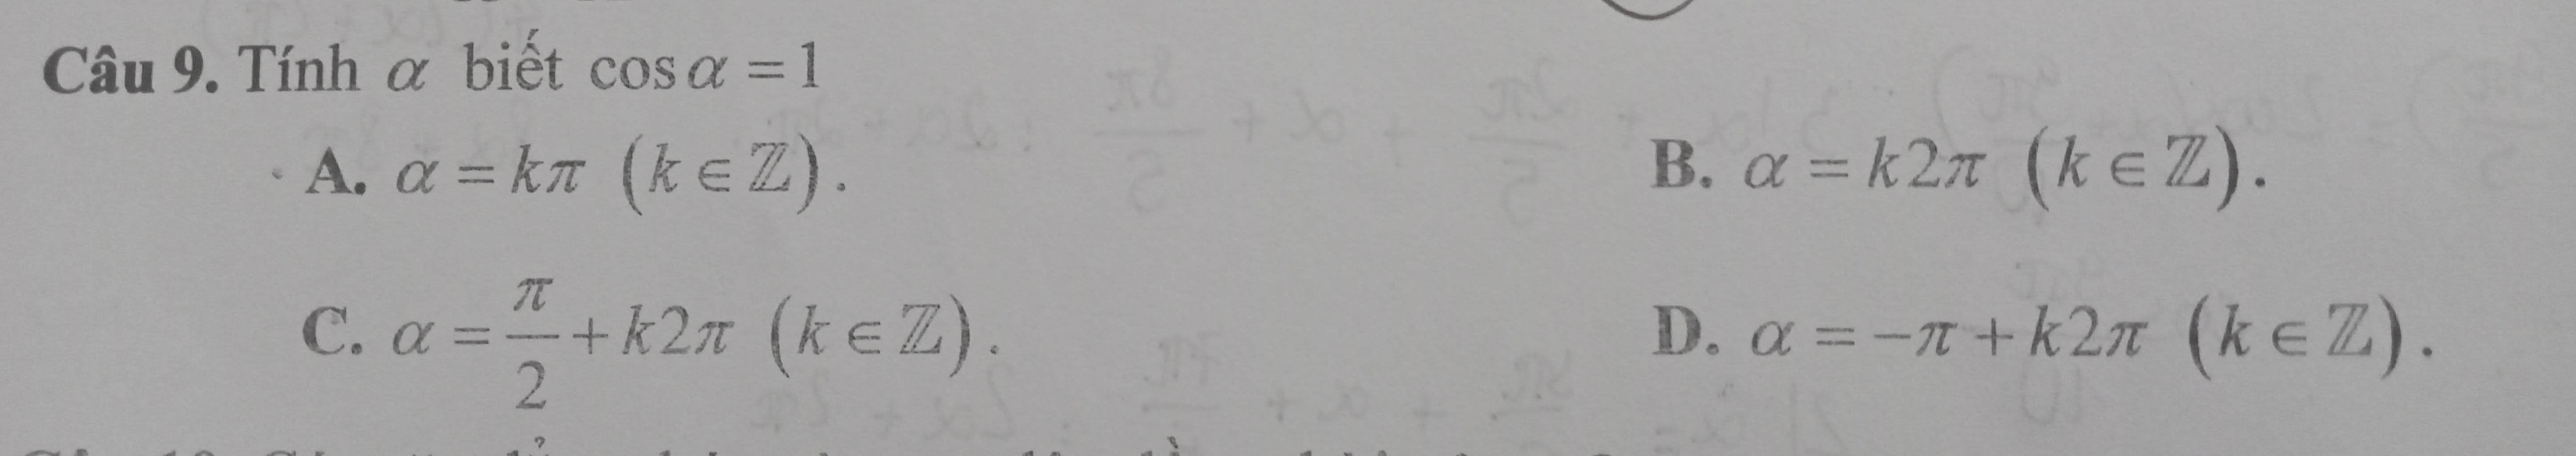 Câu 9. Tính α biết cos α = 1
A. α = kπ (k ∈ ℤ).
B. α = k2π (k ∈ ℤ).
C. α = π/2 + k2π (k ∈ ℤ).
D. α = −π + k2π (k ∈ ℤ).